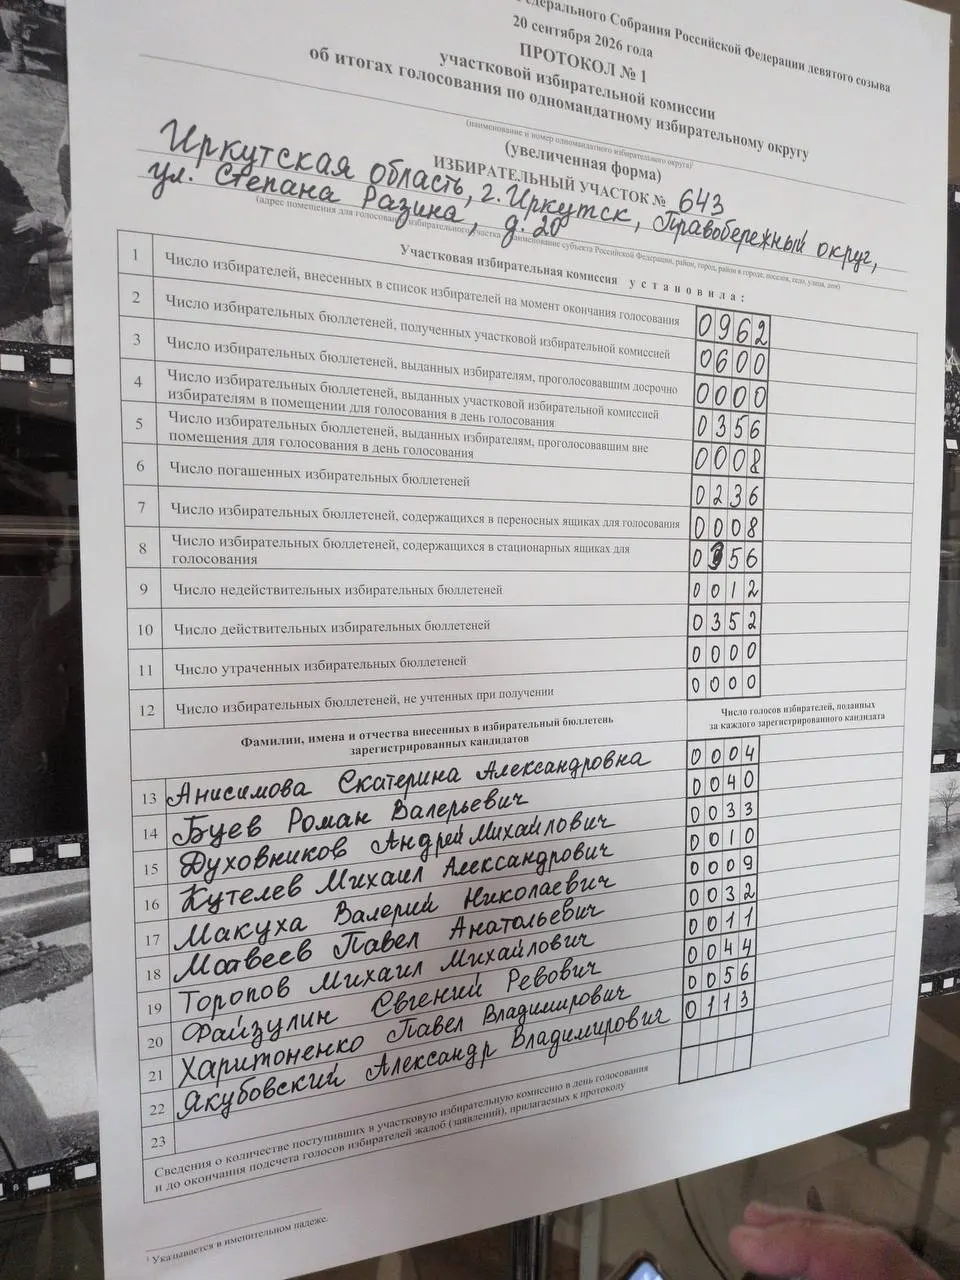 Федерального Собрания Российской Федерации девятого созыва
20 сентября 2026 года
ПРОТОКОЛ № 1
участковой избирательной комиссии
об итогах голосования по одномандатному избирательному округу
(наименование и номер одномандатного избирательного округа)
(увеличенная форма)
ИЗБИРАТЕЛЬНЫЙ УЧАСТОК № 643
Иркутская область, г. Иркутск, Правобережный округ,
ул. Степана Разина, д. 20
(адрес помещения для голосования избирательного участка – наименование субъекта Российской Федерации, район, город, район в городе, поселок, село, улица, дом)
Участковая избирательная комиссия установила:
1 Число избирателей, внесенных в список избирателей на момент окончания голосования 0962
2 Число избирательных бюллетеней, полученных участковой избирательной комиссией 0600
3 Число избирательных бюллетеней, выданных избирателям, проголосовавшим досрочно 0000
4 Число избирательных бюллетеней, выданных участковой избирательной комиссией
избирателям в помещении для голосования в день голосования 0356
5 Число избирательных бюллетеней, выданных избирателям, проголосовавшим вне
помещения для голосования в день голосования 0008
6 Число погашенных избирательных бюллетеней 0236
7 Число избирательных бюллетеней, содержащихся в переносных ящиках для голосования 0008
8 Число избирательных бюллетеней, содержащихся в стационарных ящиках для
голосования 0356
9 Число недействительных избирательных бюллетеней 0012
10 Число действительных избирательных бюллетеней 0352
11 Число утраченных избирательных бюллетеней 0000
12 Число избирательных бюллетеней, не учтенных при получении 0000
Фамилии, имена и отчества внесенных в избирательный бюллетень
зарегистрированных кандидатов
Число голосов избирателей, поданных
за каждого зарегистрированного кандидата
13 Анисимова Екатерина Александровна 0004
14 Буев Роман Валерьевич 0040
15 Духовников Андрей Михайлович 0033
16 Кутелев Михаил Александрович 0010
17 Макуха Валерий Николаевич 0009
18 Матвеев Павел Анатольевич 0032
19 Торопов Михаил Михайлович 0011
20 Файзулин Евгений Ревович 0044
21 Харитоненко Павел Владимирович 0056
22 Якубовский Александр Владимирович 0113
23
Сведения о количестве поступивших в участковую избирательную комиссию в день голосования
и до окончания подсчета голосов избирателей жалоб (заявлений), прилагаемых к протоколу
¹ Указывается в именительном падеже.